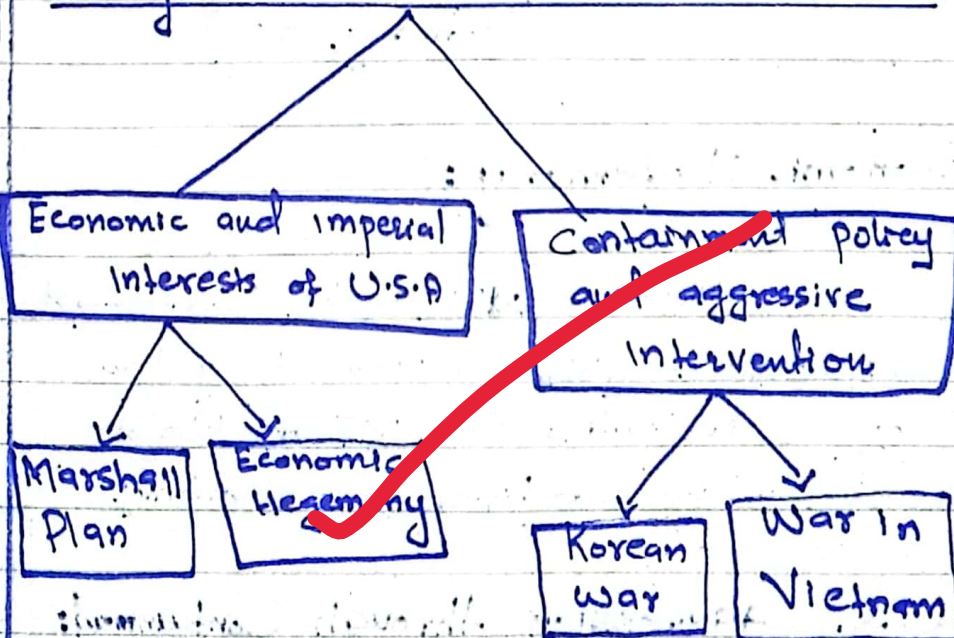 Economic and imperial
Interests of U.S.A
Containment policy
and aggressive
Intervention
Marshall
Plan
Economic
Hegemony
Korean
War
War in
Vietnam